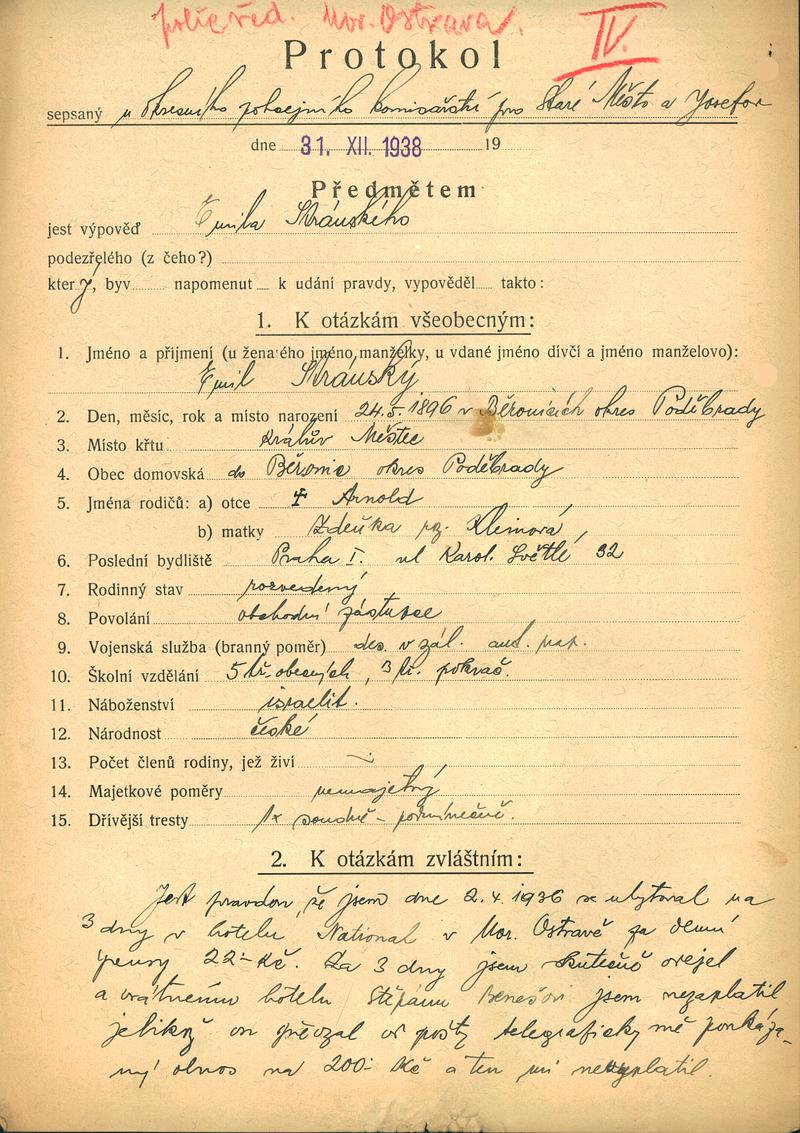 polic řed. Mor. Ostrava.
IV.
Protokol
sepsaný u okresního policejního komisařství pro Staré Město a Josefov
dne 31. XII. 1938 19
Předmětem
jest výpověď Emila Stránského
podezřelého (z čeho?)
který, byv napomenut k udání pravdy, vypověděl takto:
1. K otázkám všeobecným:
1. Jméno a přijmení (u ženatého jméno manželky, u vdané jméno dívčí a jméno manželovo):
Emil Stránský
2. Den, měsíc, rok a místo narození 24.5.1896 v Běronicích okres Poděbrady
3. Místo křtu Králův Městec
4. Obec domovská do Běronic okres Poděbrady
5. Jména rodičů: a) otce Arnold
b) matky Zdeňka roz. Kleinová
6. Poslední bydliště Praha I. ul Karol. Světlé 32
7. Rodinný stav rozvedený
8. Povolání obchodní zástupce
9. Vojenská služba (branný poměr) des. v zál.
10. Školní vzdělání 5 tř. obecných, 3 tř. pokrač.
11. Náboženství israelit.
12. Národnost české
13. Počet členů rodiny, jež živí
14. Majetkové poměry nemajetný
15. Dřívější tresty 1x soudně - podmínečně.
2. K otázkám zvláštním:
Jest pravdou, že jsem dne 2.4.1936 se ubytoval na
3 dny v hotelu National v Mor. Ostravě za denní
22.- Kč. Za 3 dny jsem skutečně odejel
a vrátnému hotelu Štěpánu Benešovi jsem nezaplatil
jelikož on převzal od pošty telegraficky mě poukáza-
ný obnos na 200.- Kč a ten mi nevyplatil.